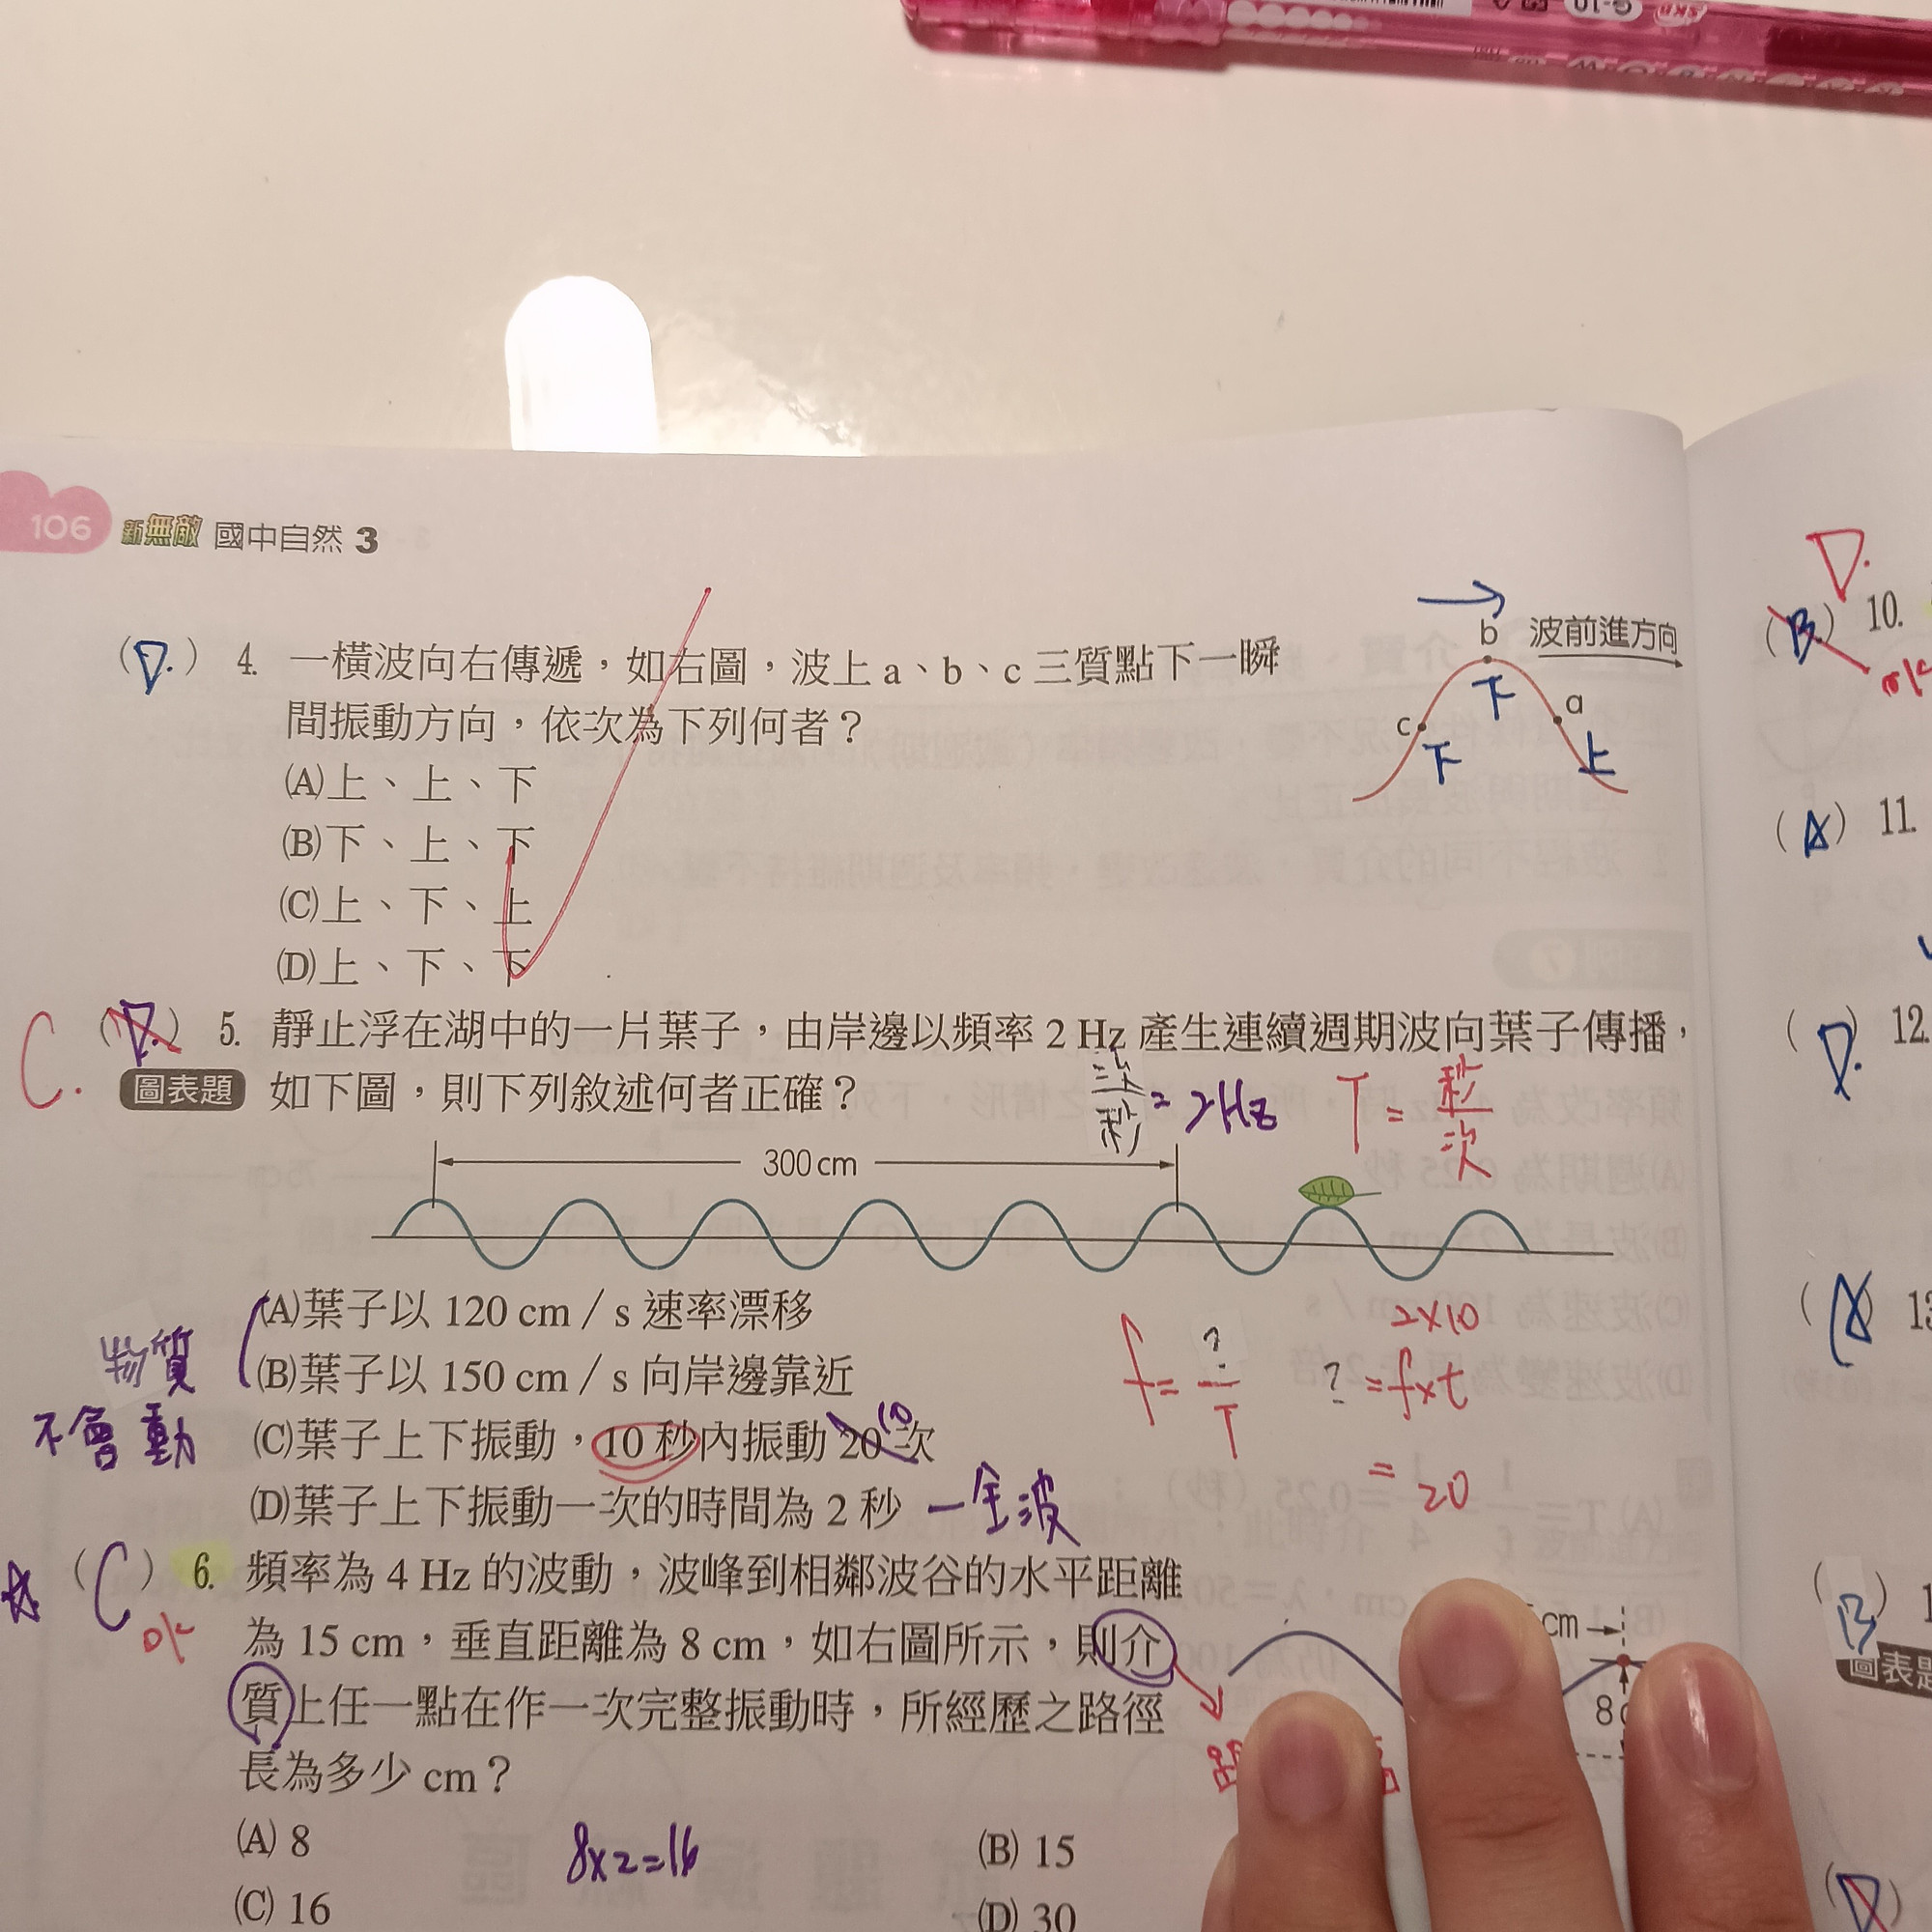 106 新無敵 國中自然 3
(D.) 4. 一橫波向右傳遞，如右圖，波上 a、b、c 三質點下一瞬
間振動方向，依次為下列何者？
(A)上、上、下
(B)下、上、下
(C)上、下、上
(D)上、下、下
b 波前進方向
下
a
上
c
下
C. (D.) 5. 靜止浮在湖中的一片葉子，由岸邊以頻率 2 Hz 產生連續週期波向葉子傳播，
圖表題 如下圖，則下列敘述何者正確？
次/秒 = 2Hz T = 秒/次
300 cm
(A)葉子以 120 cm / s 速率漂移
(B)葉子以 150 cm / s 向岸邊靠近
(C)葉子上下振動，10 秒內振動 20 次
10
(D)葉子上下振動一次的時間為 2 秒 一全波
物質
不會動
f = ?/T
2×10
? = f×t
= 20
(C) 6. 頻率為 4 Hz 的波動，波峰到相鄰波谷的水平距離
ok
為 15 cm，垂直距離為 8 cm，如右圖所示，則介
質上任一點在作一次完整振動時，所經歷之路徑
長為多少 cm？
cm
8
(A) 8
(B) 15
8×2=16
(C) 16
(D) 30
D.
(B) 10.
ok
(A) 11.
(D.) 12.
(A) 13
(B) 1
圖表題
(D)
G-10
SKB